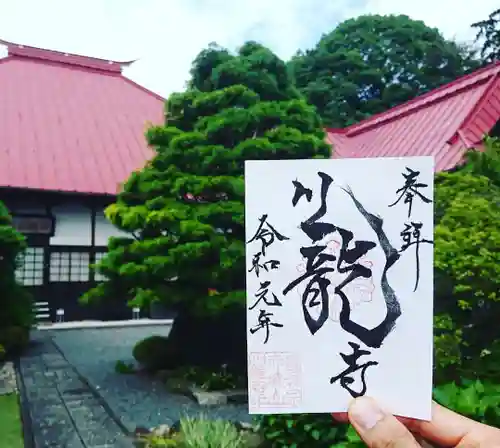 奉拝
川龍寺
令和元年